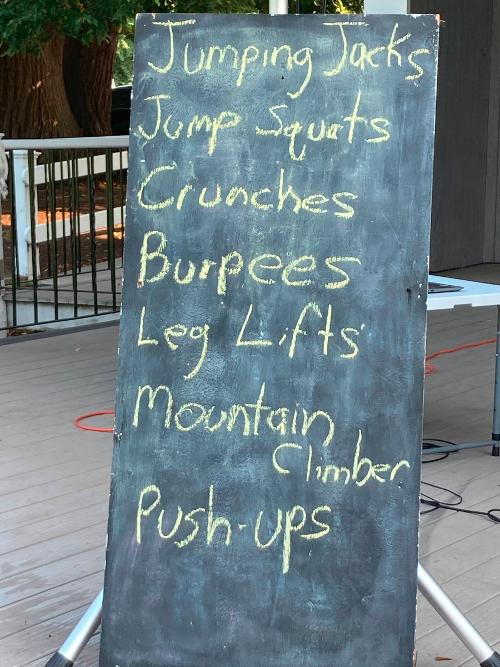 Jumping Jacks
Jump Squats
Crunches
Burpees
Leg Lifts
Mountain
Climber
Push-ups